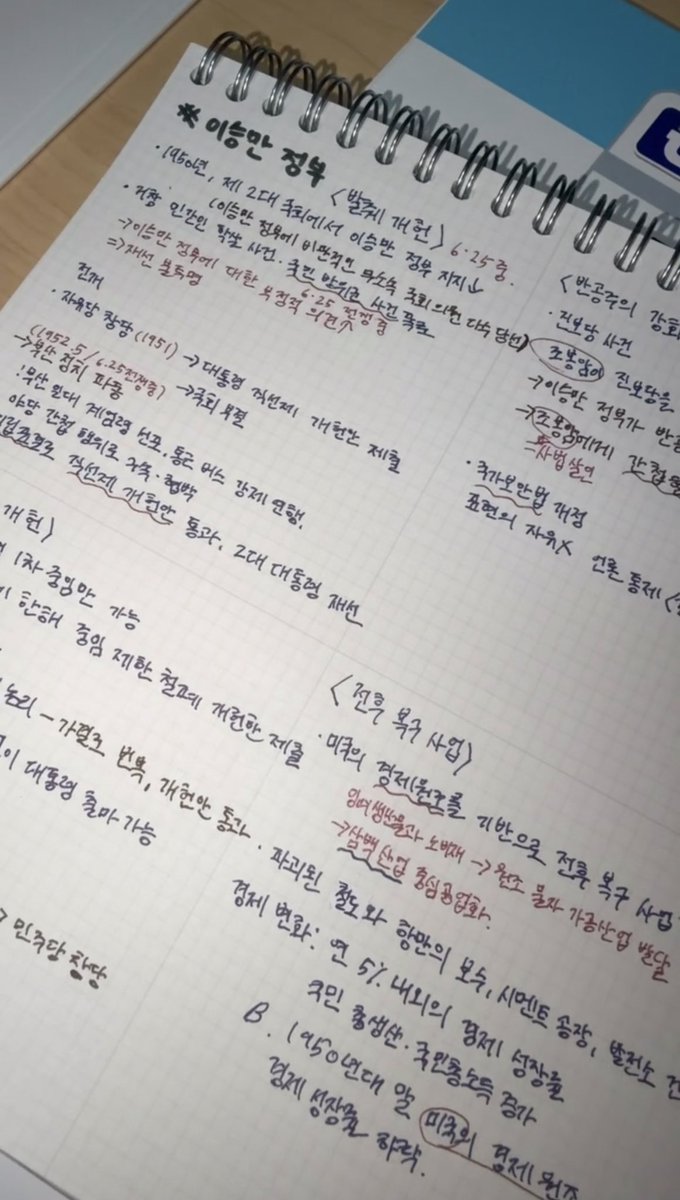 ※ 이승만 정부
<발췌 개헌> 6·25 중.
· 1950년, 제 2대 국회에서 이승만 정부 지지↓
(이승만 정부에 비판적인 무소속 국회의원 다수 당선)
· 거창 민간인 학살 사건·국민 방위군 사건 폭로
6·25 전쟁 중
→이승만 정부에 대한 부정적 의견↑
⇒재선 불투명
전개
· 자유당 창당(1951) →대통령 직선제 개헌안 제출
→국회 부결
(1952.5/6.25전쟁중)
→부산 정치 파동
: 부산 일대 계엄령 선포, 통근 버스 강제 연행,
야당 간첩 혐의로 구속·협박
직선제 개헌안 통과, 2대 대통령 재선
개헌>
1차 중임만 가능
한해 중임 제한 철폐 개헌안 제출
논리 – 가결로 번복, 개헌안 통과
대통령 출마 가능
→ 민주당 창당
<반공주의 강화
· 진보당 사건
조봉암이 진보당을
→이승만 정부가 반공
→조봉암에게 간첩
⇒사법살인
· 국가보안법 개정
표현의 자유X 언론 통제
<전후 복구 사업>
· 미국의 경제원조를 기반으로 전후 복구 사업
잉여생산물과 소비재 → 원조 물자 가공산업 발달
→삼백산업 중심공업화.
· 파괴된 철도와 항만의 보수, 시멘트 공장, 발전소 건
경제 변화: 연 5% 내외의 경제 성장률
국민 총생산·국민총소득 증가
B. 1950년대 말 미국의 경제 원조
경제 성장률 하락.